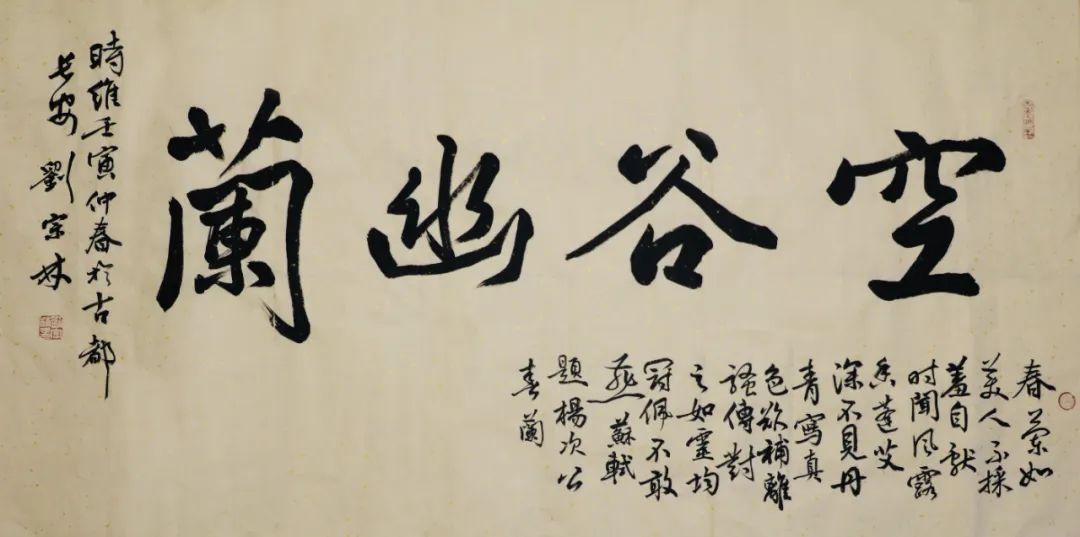 空谷幽蘭
春蘭如
美人不採
羞自献
时聞风露
香蓬艾
深不見丹
青寫真
色欲補離
騷傳對
之如靈均
冠佩不敢
燕 蘇軾
題楊次公
春蘭
時維壬寅仲春於古都
長安 劉宗林